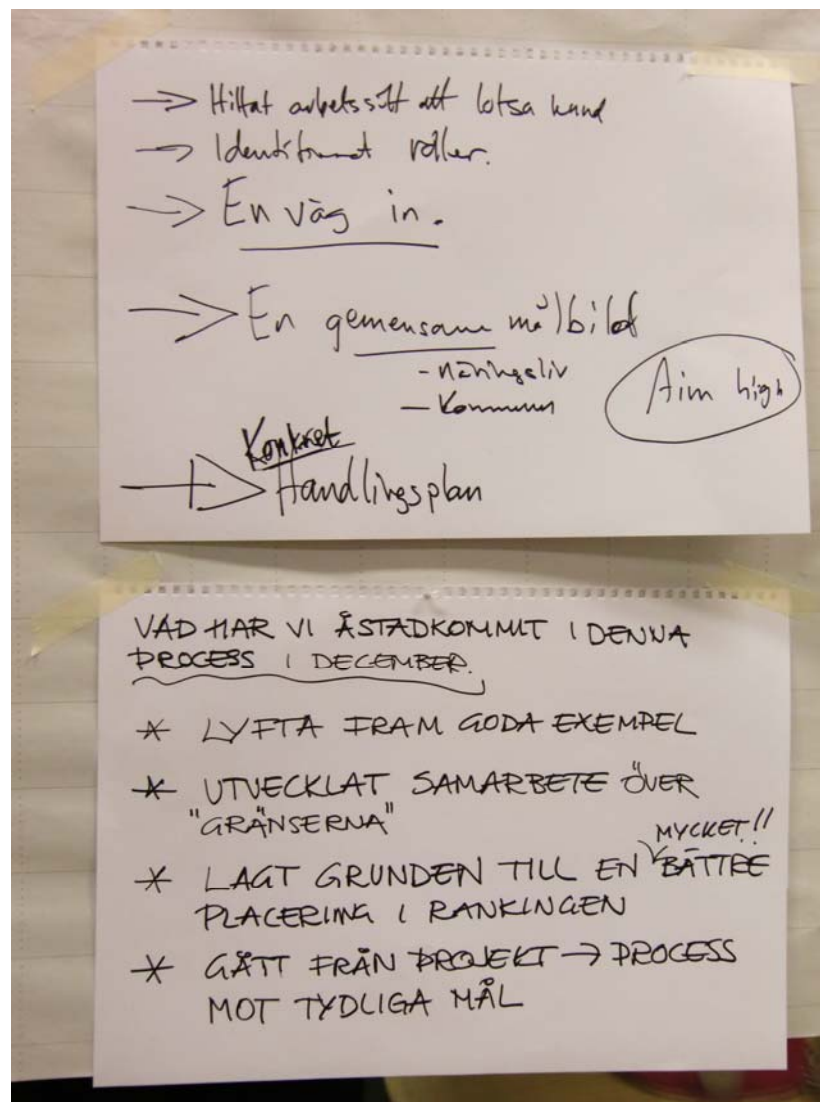 → Hittat arbetssätt att lotsa kund
→ Identifierat roller.
→ En väg in.
→ En gemensam målbild
- näringsliv
- Kommun
Aim high
Konkret
→ Handlingsplan
VAD HAR VI ÅSTADKOMMIT I DENNA
PROCESS I DECEMBER.
* LYFTA FRAM GODA EXEMPEL
* UTVECKLAT SAMARBETE ÖVER
"GRÄNSERNA"
MYCKET!!
* LAGT GRUNDEN TILL EN BÄTTRE
PLACERING I RANKINGEN
* GÅTT FRÅN PROJEKT → PROCESS
MOT TYDLIGA MÅL